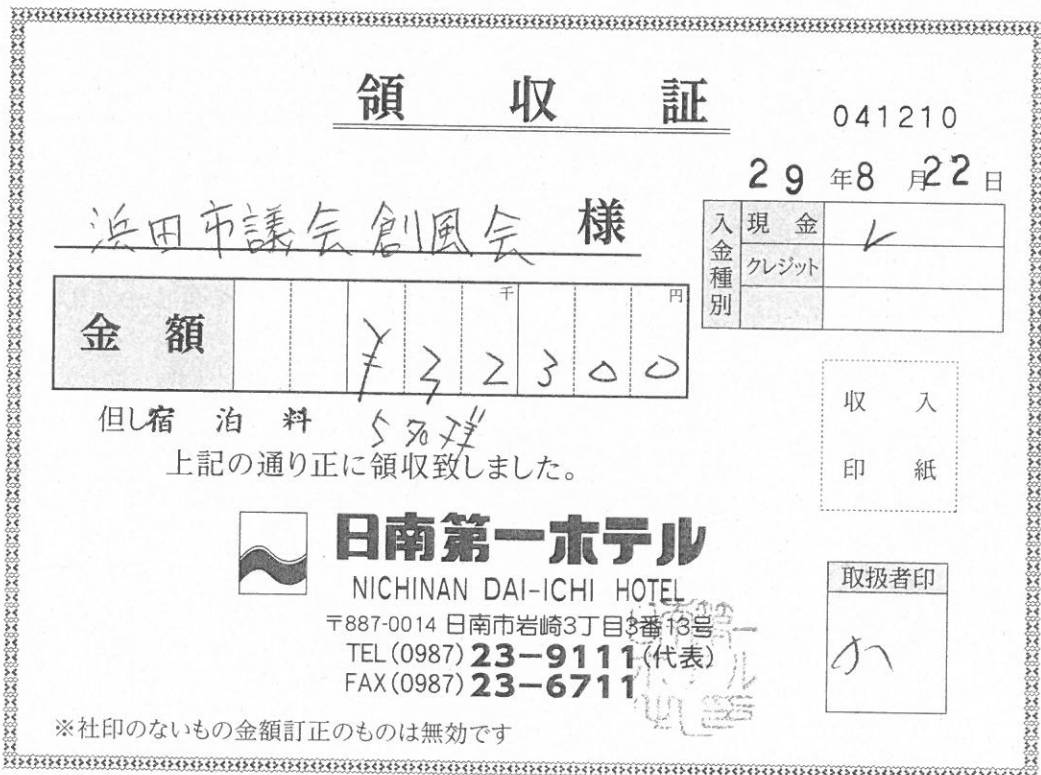 領 収 証
041210
29年8月22日
浜田市議会創風会 様
入金種別
現 金 レ
クレジット
金 額 千 円
¥32300
但し宿 泊 料 5名様
上記の通り正に領収致しました。
収 入
印 紙
日南第一ホテル
NICHINAN DAI-ICHI HOTEL
〒887-0014 日南市岩崎3丁目3番13号
TEL(0987)23-9111(代表)
FAX(0987)23-6711
取扱者印
※社印のないもの金額訂正のものは無効です